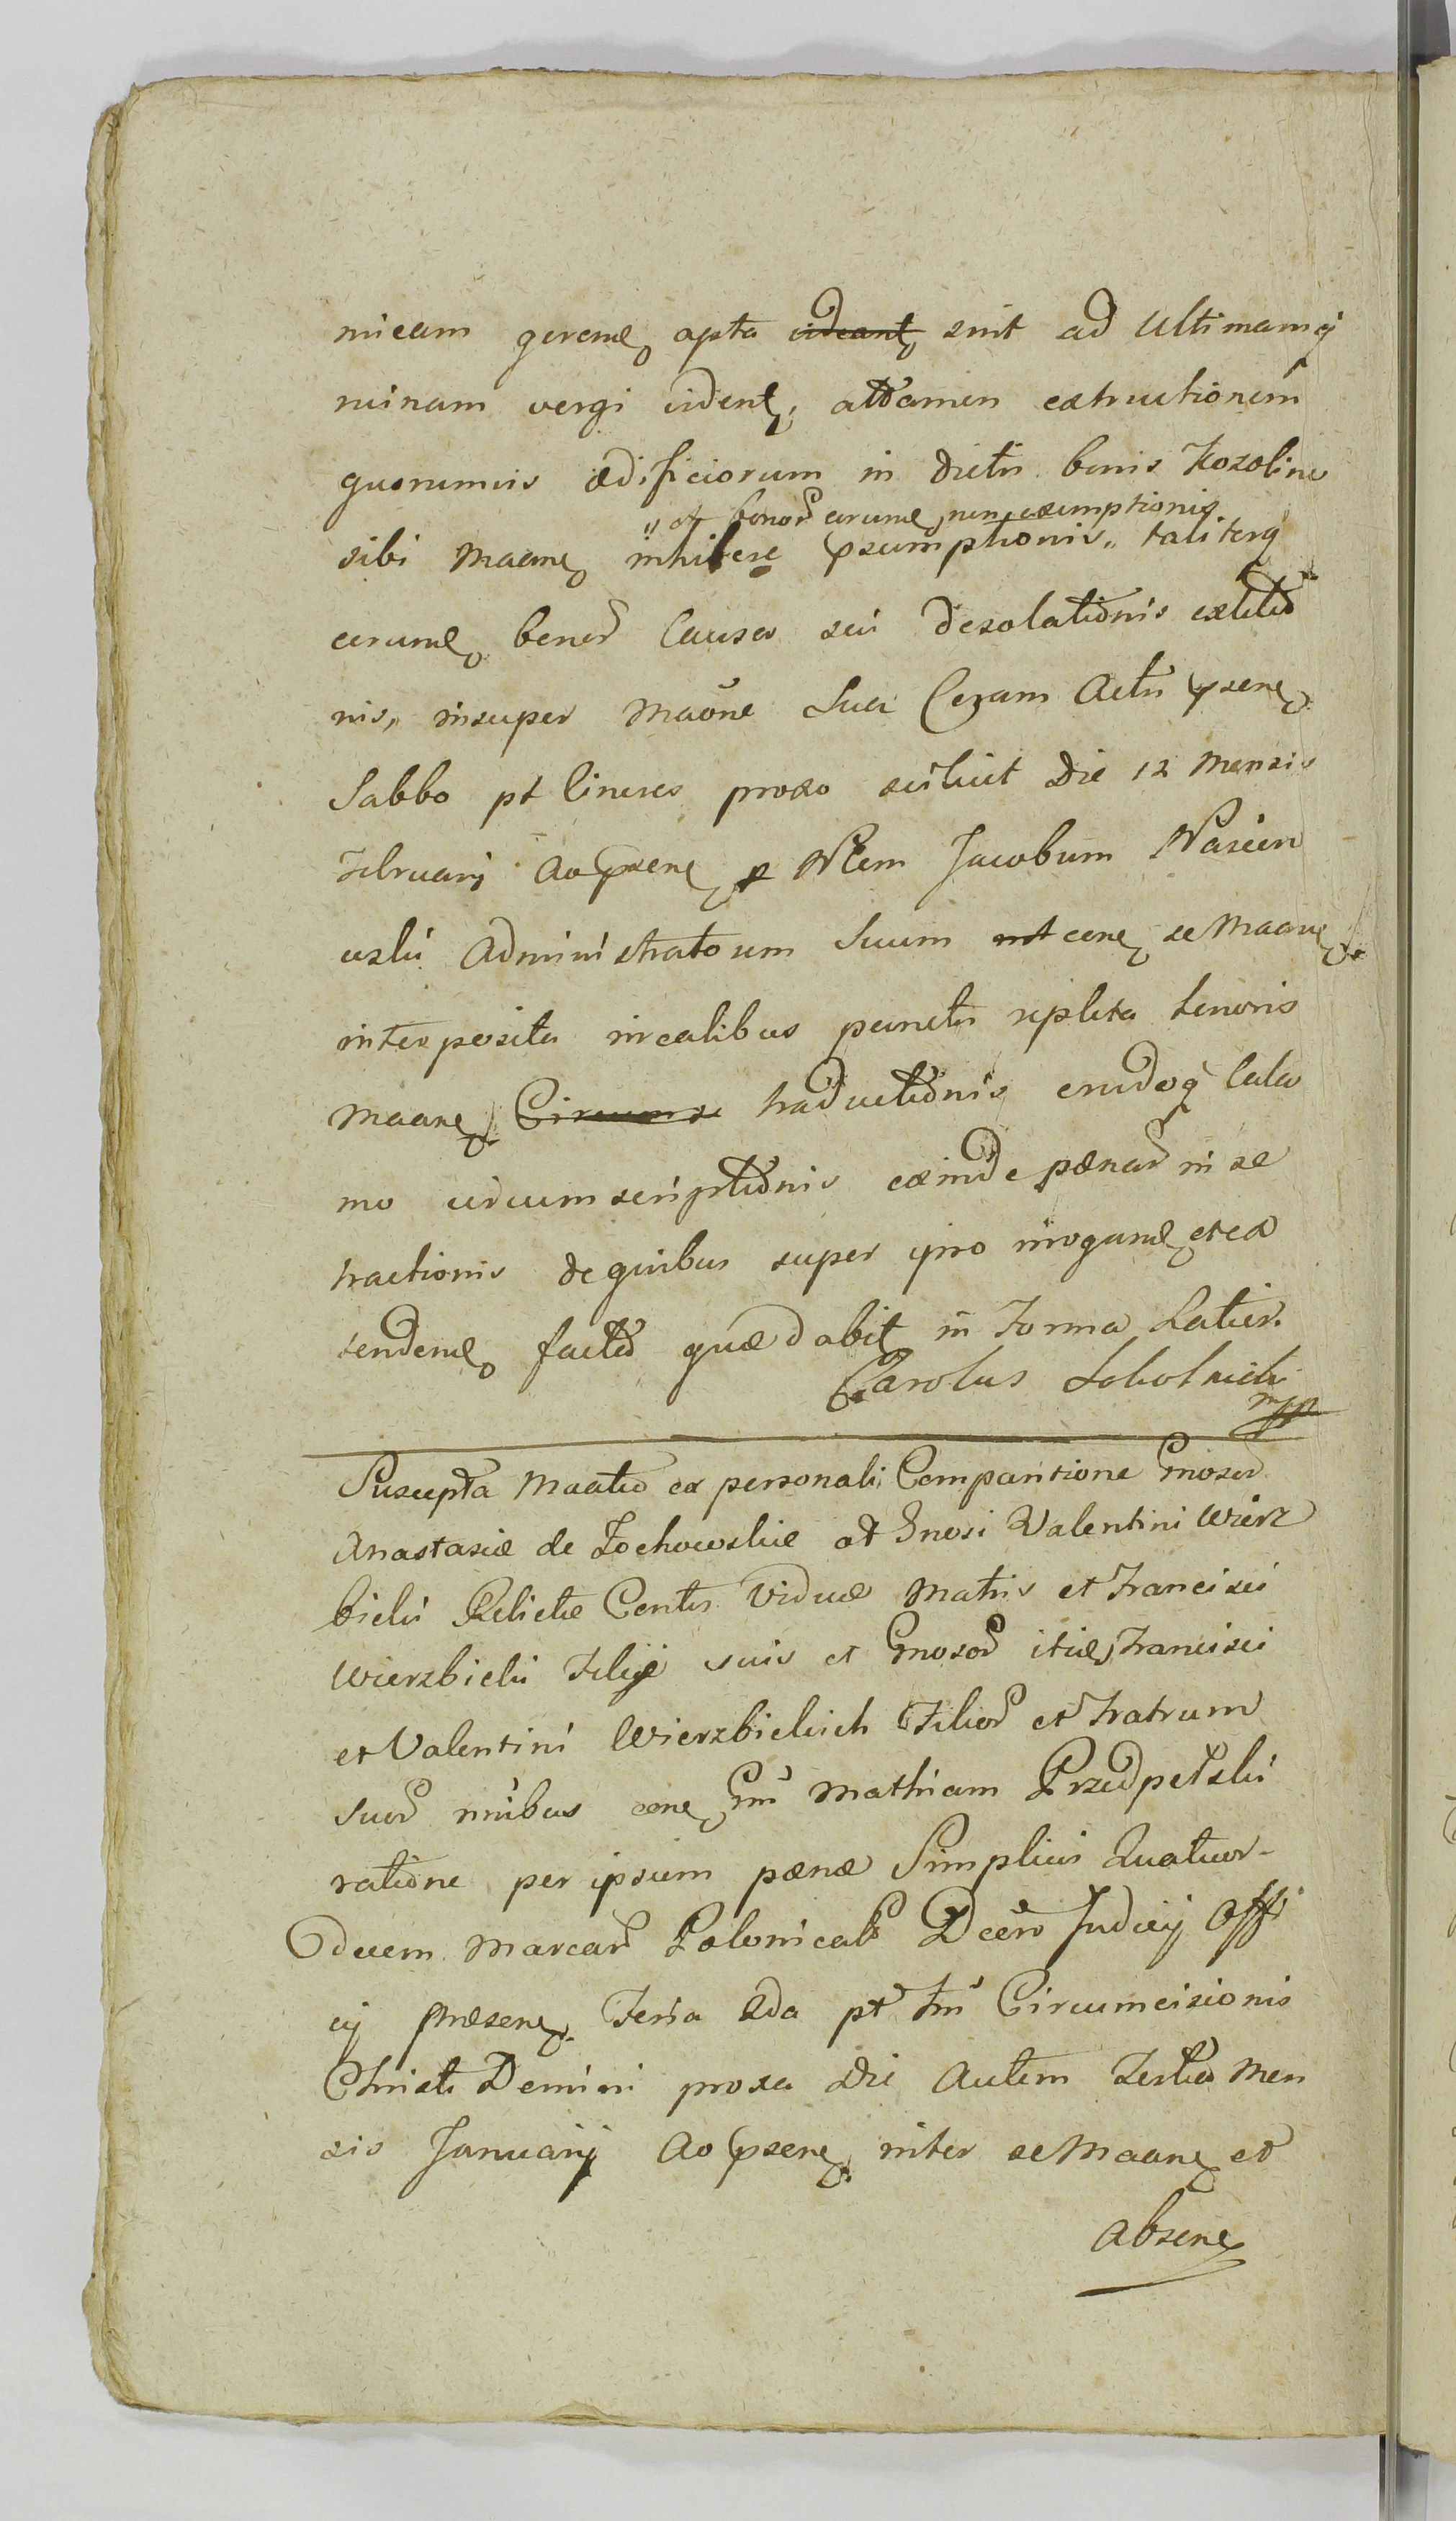 nicam gerene apta videant sint ad Ultimamq
ruinam vergi videnl, attamen extructionem
quorumvis ædificiorum in dictis bonis Kozolino
„ et bonor earume non exemptionis
sibi Maane inhibere psumptionis„ taliterq
earume bonor Causa sui desolationis extitio
nis, insuper Maone Sua Coram Actis psene
Sabbo pt Cineres proxo scilicet Die 12 Mensis
Februarij Ao psene p Nlem Jacobum
Administratorem Suum cone se Maane
interposita incalibus punctis repleta tenoris
Maane Circumse traductionis erudoq Cala
mo circumscriptionis exinde pænar in se
tractionis de quibus super ipso irrogane et ex
tendene factio quæ dabit in Forma Latior.
Carolus Sobolewski
mpp
Suscepta Maatio ex personali Comparitione Gnosor
Anastasiæ de Zochowskie ad Gnosi Valentini Wierz
bicki Relictæ Contis Viduæ Matris et Francisci
Wierzbicki Filij suis et Gnosor itie Francisci
et Valentini Wierzbickich Filior et Fratrum
Suor nnibus cone Gm Mathiam Przedpełski
ratione per ipsum pænæ Simplicis Quatuor-
decem Marcar Polonicals Dcero Judicij Offi
cij Præsene Feria 2da pt Fm Circumcisionis
Christi Domini proxa Die Autem Tertia Men
sis Januarij Ao psene inter se Maane et
Absene